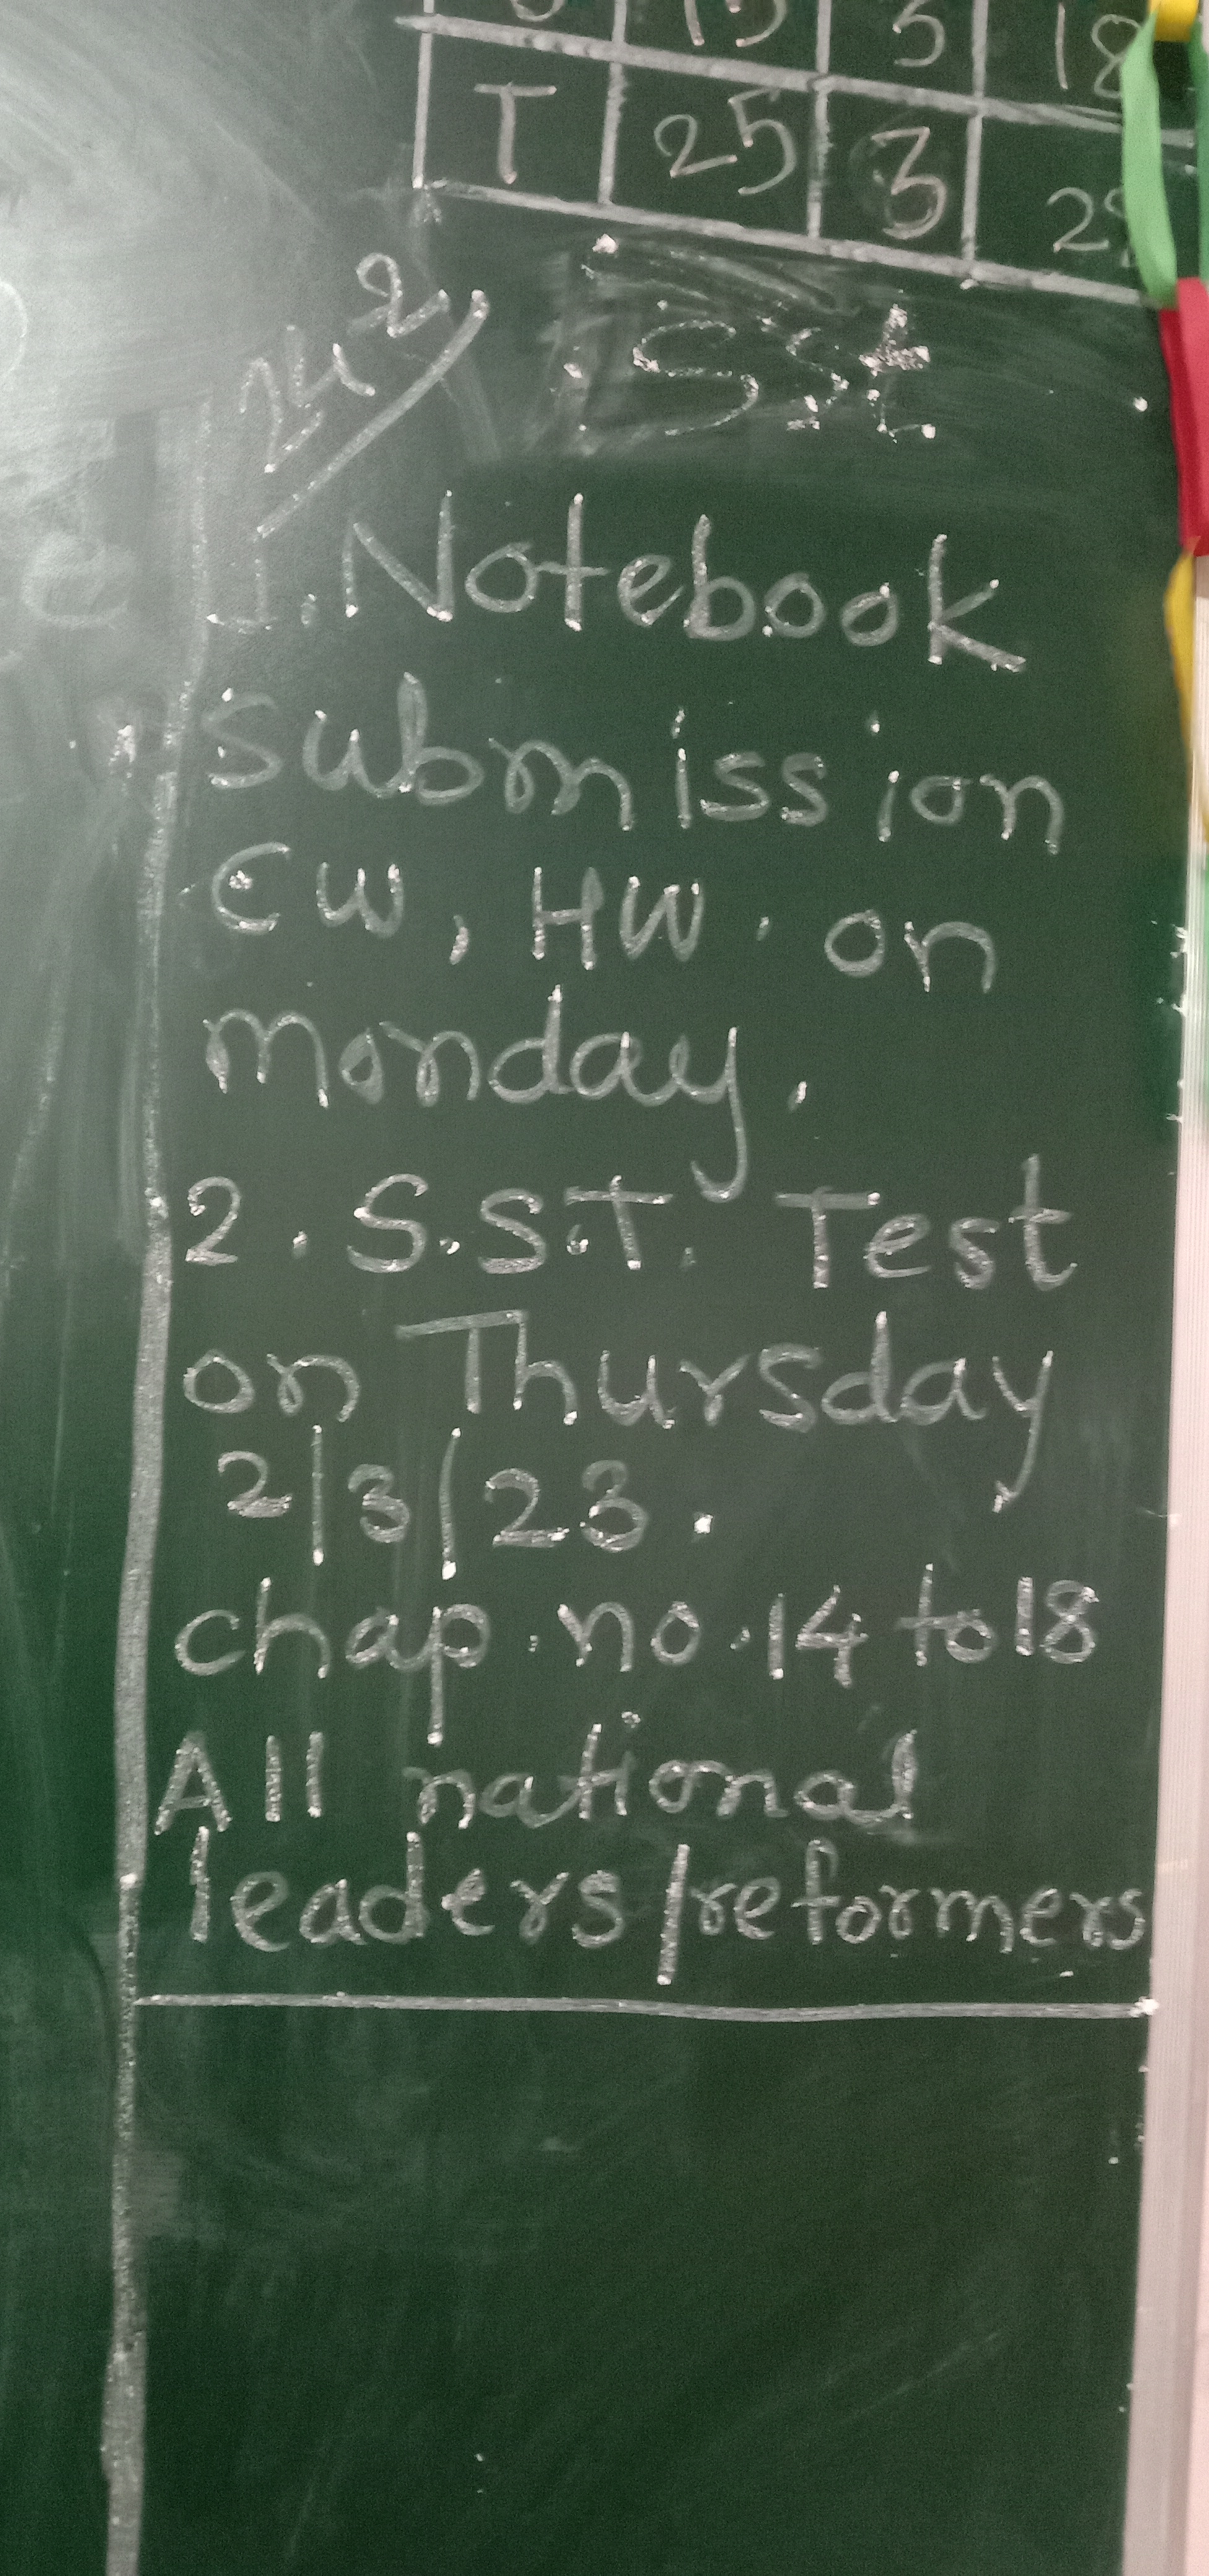 15 5 18
T 25 3
SSt
1. Notebook
submission
CW, HW. on
monday.
2. S.S.T. Test
on Thursday
2/3/23.
chap. no. 14 to 18
All national
leaders/reformers